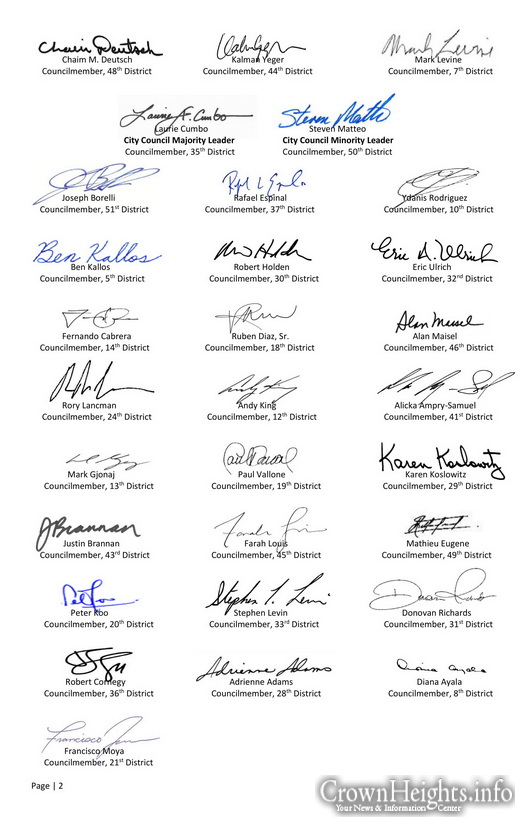 Chaim Deutsch
Chaim M. Deutsch Kalman Yeger Mark Levine
Councilmember, 48th District Councilmember, 44th District Councilmember, 7th District
Laurie A. Cumbo Steven Matteo
Laurie Cumbo Steven Matteo
City Council Majority Leader City Council Minority Leader
Councilmember, 35th District Councilmember, 50th District
Joseph Borelli Rafael Espinal Ydanis Rodriguez
Councilmember, 51st District Councilmember, 37th District Councilmember, 10th District
Ben Kallos Eric A. Ulrich
Ben Kallos Robert Holden Eric Ulrich
Councilmember, 5th District Councilmember, 30th District Councilmember, 32nd District
Alan Maisel
Fernando Cabrera Ruben Diaz, Sr. Alan Maisel
Councilmember, 14th District Councilmember, 18th District Councilmember, 46th District
Rory Lancman Andy King Alicka Ampry-Samuel
Councilmember, 24th District Councilmember, 12th District Councilmember, 41st District
Karen Koslowitz
Mark Gjonaj Paul Vallone Karen Koslowitz
Councilmember, 13th District Councilmember, 19th District Councilmember, 29th District
JBrannan
Justin Brannan Farah Louis Mathieu Eugene
Councilmember, 43rd District Councilmember, 45th District Councilmember, 49th District
Peter Koo Stephen Levin Donovan Richards
Councilmember, 20th District Councilmember, 33rd District Councilmember, 31st District
Adrienne Adams Diana Ayala
Robert Cornegy Adrienne Adams Diana Ayala
Councilmember, 36th District Councilmember, 28th District Councilmember, 8th District
Francisco Moya
Councilmember, 21st District
Page | 2
CrownHeights.info
Your News & Information Center